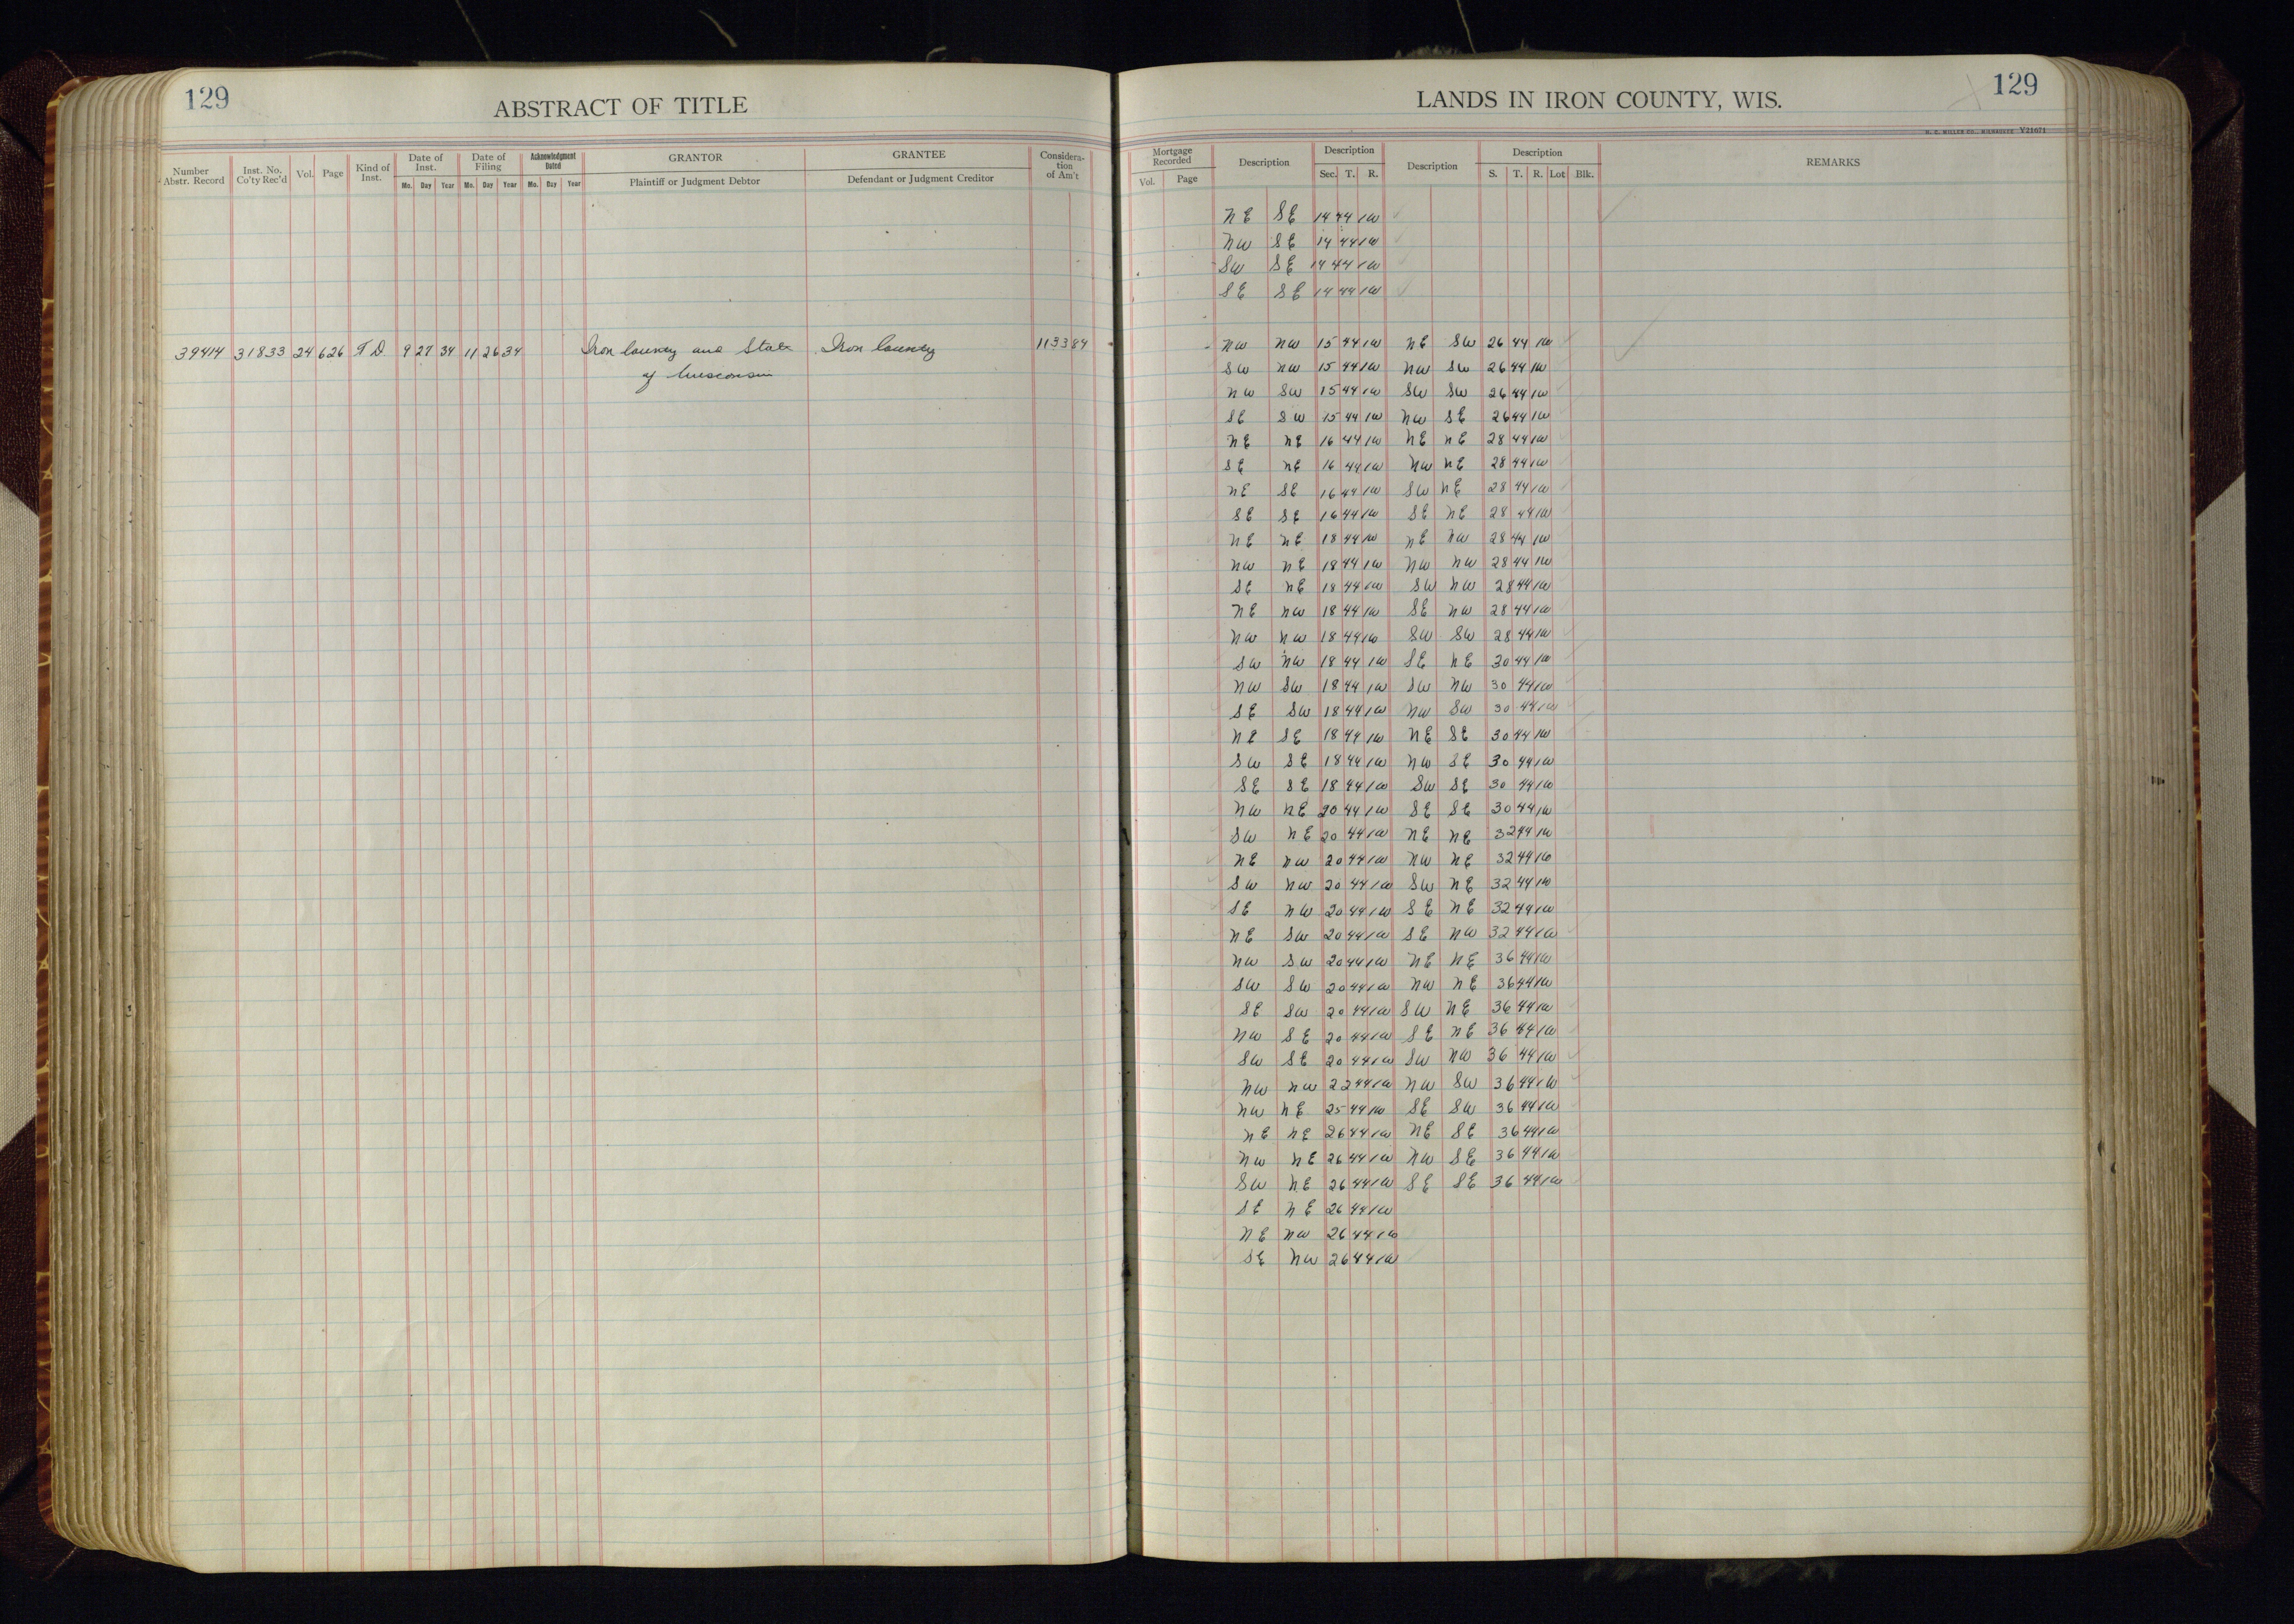 129
ABSTRACT OF TITLE
LANDS IN IRON COUNTY, WIS.
129
H. C. MILLER CO., MILWAUKEE Y21671
Number Abstr. Record
Inst. No. Co'ty Rec'd
Vol.
Page
Kind of Inst.
Date of Inst.
Mo. Day Year
Date of Filing
Mo. Day Year
Acknowledgment Dated
Mo. Day Year
GRANTOR
Plaintiff or Judgment Debtor
GRANTEE
Defendant or Judgment Creditor
Considera-tion of Am't
Mortgage Recorded
Vol. Page
Description
Description
Sec. T. R.
Description
Description
S. T. R. Lot Blk.
REMARKS
NE SE 14 44 1W
NW SE 14 44 1W
SW SE 14 44 1W
SE SE 14 44 1W
39414 31833 24 626 T.D. 9 27 34 11 26 34 Iron County and State Iron County 1133 84
of Wisconsin
NW NW 15 44 1W NE SW 26 44 1W
SW NW 15 44 1W NW SW 26 44 1W
NW SW 15 44 1W SW SW 26 44 1W
SE SW 15 44 1W NW SE 26 44 1W
NE NE 16 44 1W NE NE 28 44 1W
SE NE 16 44 1W NW NE 28 44 1W
NE SE 16 44 1W SW NE 28 44 1W
SE SE 16 44 1W SE NE 28 44 1W
NE NE 18 44 1W NE NW 28 44 1W
NW NE 18 44 1W NW NW 28 44 1W
SE NE 18 44 1W SW NW 28 44 1W
NE NW 18 44 1W SE NW 28 44 1W
NW NW 18 44 1W SW SW 28 44 1W
SW NW 18 44 1W SE NE 30 44 1W
NW SW 18 44 1W SW NW 30 44 1W
SE SW 18 44 1W NW SW 30 44 1W
NE SE 18 44 1W NE SE 30 44 1W
SW SE 18 44 1W NW SE 30 44 1W
SE SE 18 44 1W SW SE 30 44 1W
NW NE 20 44 1W SE SE 30 44 1W
SW NE 20 44 1W NE NE 32 44 1W
NE NW 20 44 1W NW NE 32 44 1W
SW NW 20 44 1W SW NE 32 44 1W
SE NW 20 44 1W SE NE 32 44 1W
NE SW 20 44 1W SE NW 32 44 1W
NW SW 20 44 1W NE NE 36 44 1W
SW SW 20 44 1W NW NE 36 44 1W
SE SW 20 44 1W SW NE 36 44 1W
NW SE 20 44 1W SE NE 36 44 1W
SW SE 20 44 1W SW NW 36 44 1W
NW NW 22 44 1W NW SW 36 44 1W
NW NE 25 44 1W SE SW 36 44 1W
NE NE 26 44 1W NE SE 36 44 1W
NW NE 26 44 1W NW SE 36 44 1W
SW NE 26 44 1W SE SE 36 44 1W
SE NE 26 44 1W
NE NW 26 44 1W
SE NW 26 44 1W